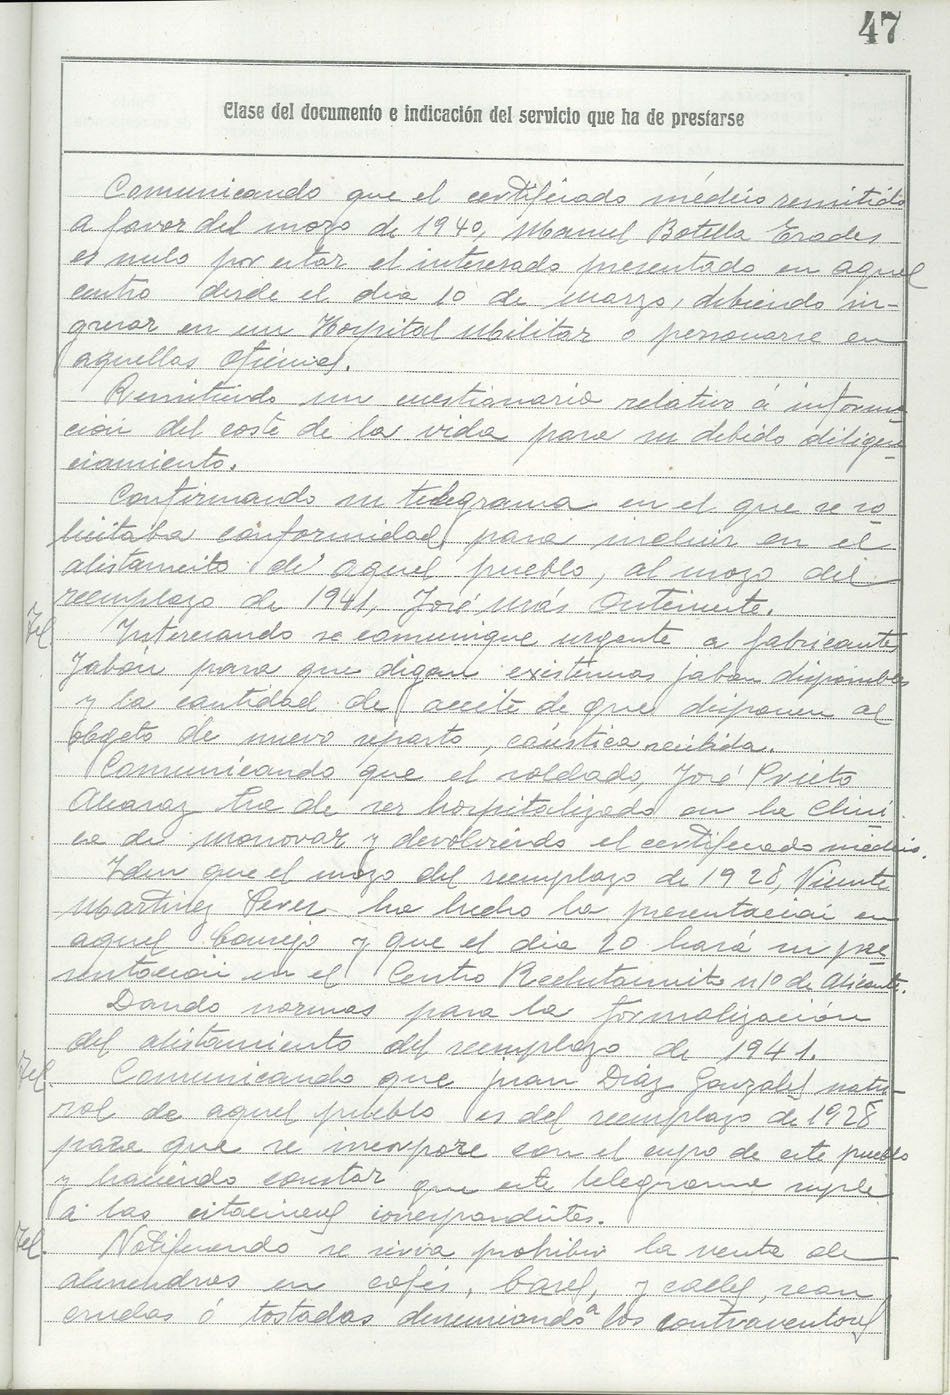 47
Clase del documento e indicación del servicio que ha de prestarse
Comunicando que el certificado médico remitido
a favor del mozo de 1940, Manuel Botella Erades
es nulo por estar el interesado presentado en aquel
centro desde el dia 10 de marzo, debiendo in-
gresar en un Hospital Militar o personarse en
aquellas oficinas.
Remitiendo un cuestionario relativo á informa
ción del coste de la vida para su debido diligen
ciamiento.
Confirmando su telegrama en el que se so
licitaba conformidad para incluir en el
alistamiento de aquel pueblo, al mozo del
reemplazo de 1941, José Más Onteniente.
Tel. Interesando se comunique urgente a fabricantes
Jabón para que digan existencias jabon disponibles
y la cantidad de aceite de que disponen al
objeto de nuevo reparto, cáustica recibida.
Comunicando que el soldado, José Prieto
Alcaraz ha de ser hospitalizado en la Clini
ca de Monovar y devolviendo el certificado médico.
Iden que el mozo del reemplazo de 1928, Vicente
Martinez Perez ha hecho la presentación en
aquel Consejo y que el dia 20 hará su pre
sentación en el Centro Reclutamito nº 10 de Alicante.
Dando normas para la formalización
del alistamiento del reemplazo de 1941.
Tel. Comunicando que Juan Diaz Gonzalez natu-
ral de aquel pueblo es del reemplazo de 1928
para que se incorpore con el cupo de este pueblo
y haciendo constar que este telegrama suple
a las citaciones correspondientes.
Tel. Notificando se sirva prohibir la venta de
almendras en cafés, bares, y calles, sean
crudas ó tostadas denunciando a los contraventores